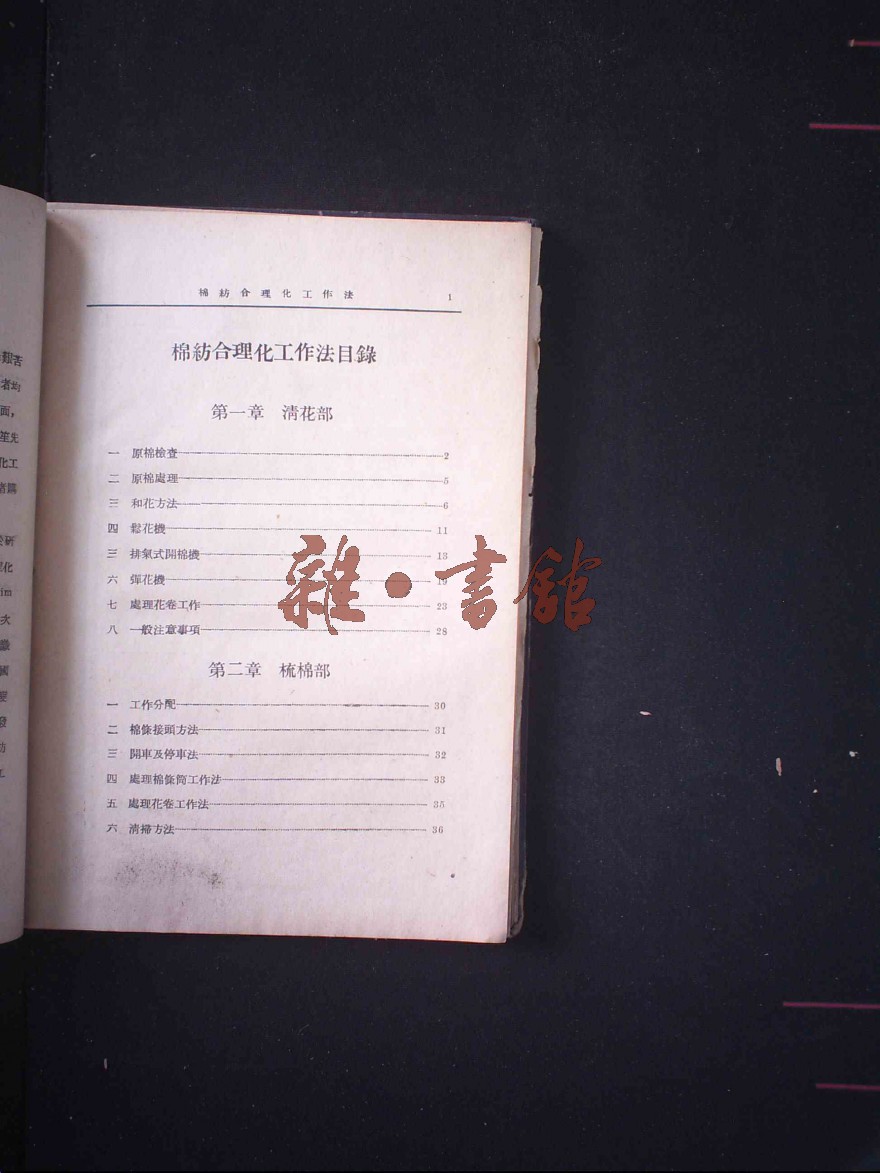 艱苦
者均
面，
笙先
化工
研
化
im
大
國
發
棉紡合理化工作法 1
棉紡合理化工作法目錄
第一章 清花部
一 原棉檢查 2
二 原棉處理 5
三 和花方法 6
四 鬆花機 11
三 排氣式開棉機 13
六 彈花機 19
七 處理花卷工作 23
八 一般注意事項 28
第二章 梳棉部
一 工作分配 30
二 棉條接頭方法 31
三 開車及停車法 32
四 處理棉條筒工作法 33
五 處理花卷工作法 35
六 清掃方法 36
雜·書館